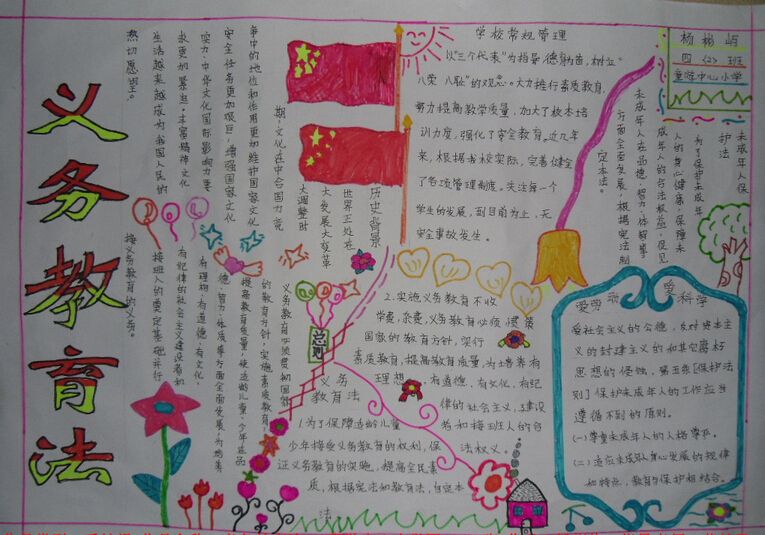 义务教育法
杨彬屿
四(2)班
童庄中心小学
学校常规管理
以“三个代表”为指导,德育为首,树立
八荣 八耻”的观念。大力推行素质教育,
努力提高教学质量,加大了校本培
训力度,强化了安全教育。近几年
来,根据我校实际,完善健全
了各项管理制度。关注每一个
学生的发展,到目前为止,无
安全事故发生。
未成年人保
护法
为了保护未成年
人的身心健康,保障未
成年人的合法权益,促进
未成年人在品德、智力、体质等
方面全面发展,根据宪法制
定本法。
历史背景
世界正处在
大发展大变革
大调整时
期,文化在中合国力竞
争中的地位和作用更加维护国家文化
安全任务更加艰巨,增强国家文化
实力、中华文化国际影响力要
求更加紧迫。丰富精神文化
生活越来越成为我国人民的
热切愿望。
义务教育必须贯彻国家
的教育方针,实施素质教育,
提高教育质量,使适龄儿童、少年在品
德、智力、体质等方面全面发展,为培养
有理想、有道德、有文化、
有纪律的社会主义建设者和
接班人的奠定基础并行
接义务教育的义务。
总则
义务
教育法
1.为了保障适龄儿童
少年接受义务教育的权利,保
证义务教育的实施,提高全民素
质,根据宪法和教育法,自定本
法
2.实施义务教育不收
学费、杂费,义务教育必须惯策
国家的教育方针,实行
素质教育,提高教育质量,为培养有
理想、有道德、有文化、有纪
律的社会主义,建设
者和接班人的合
法权义。
爱劳动 爱科学
爱社会主义的公德,反对资本主
义的封建主义的和其它腐朽
思想的侵蚀,第五条[保护法
则]保护未成年人的工作应当
遵循不列的原则。
(一)尊重未成年人的人格尊严。
(二)适应未成年人身心发展的规律
和特点,教育与保护相结合。